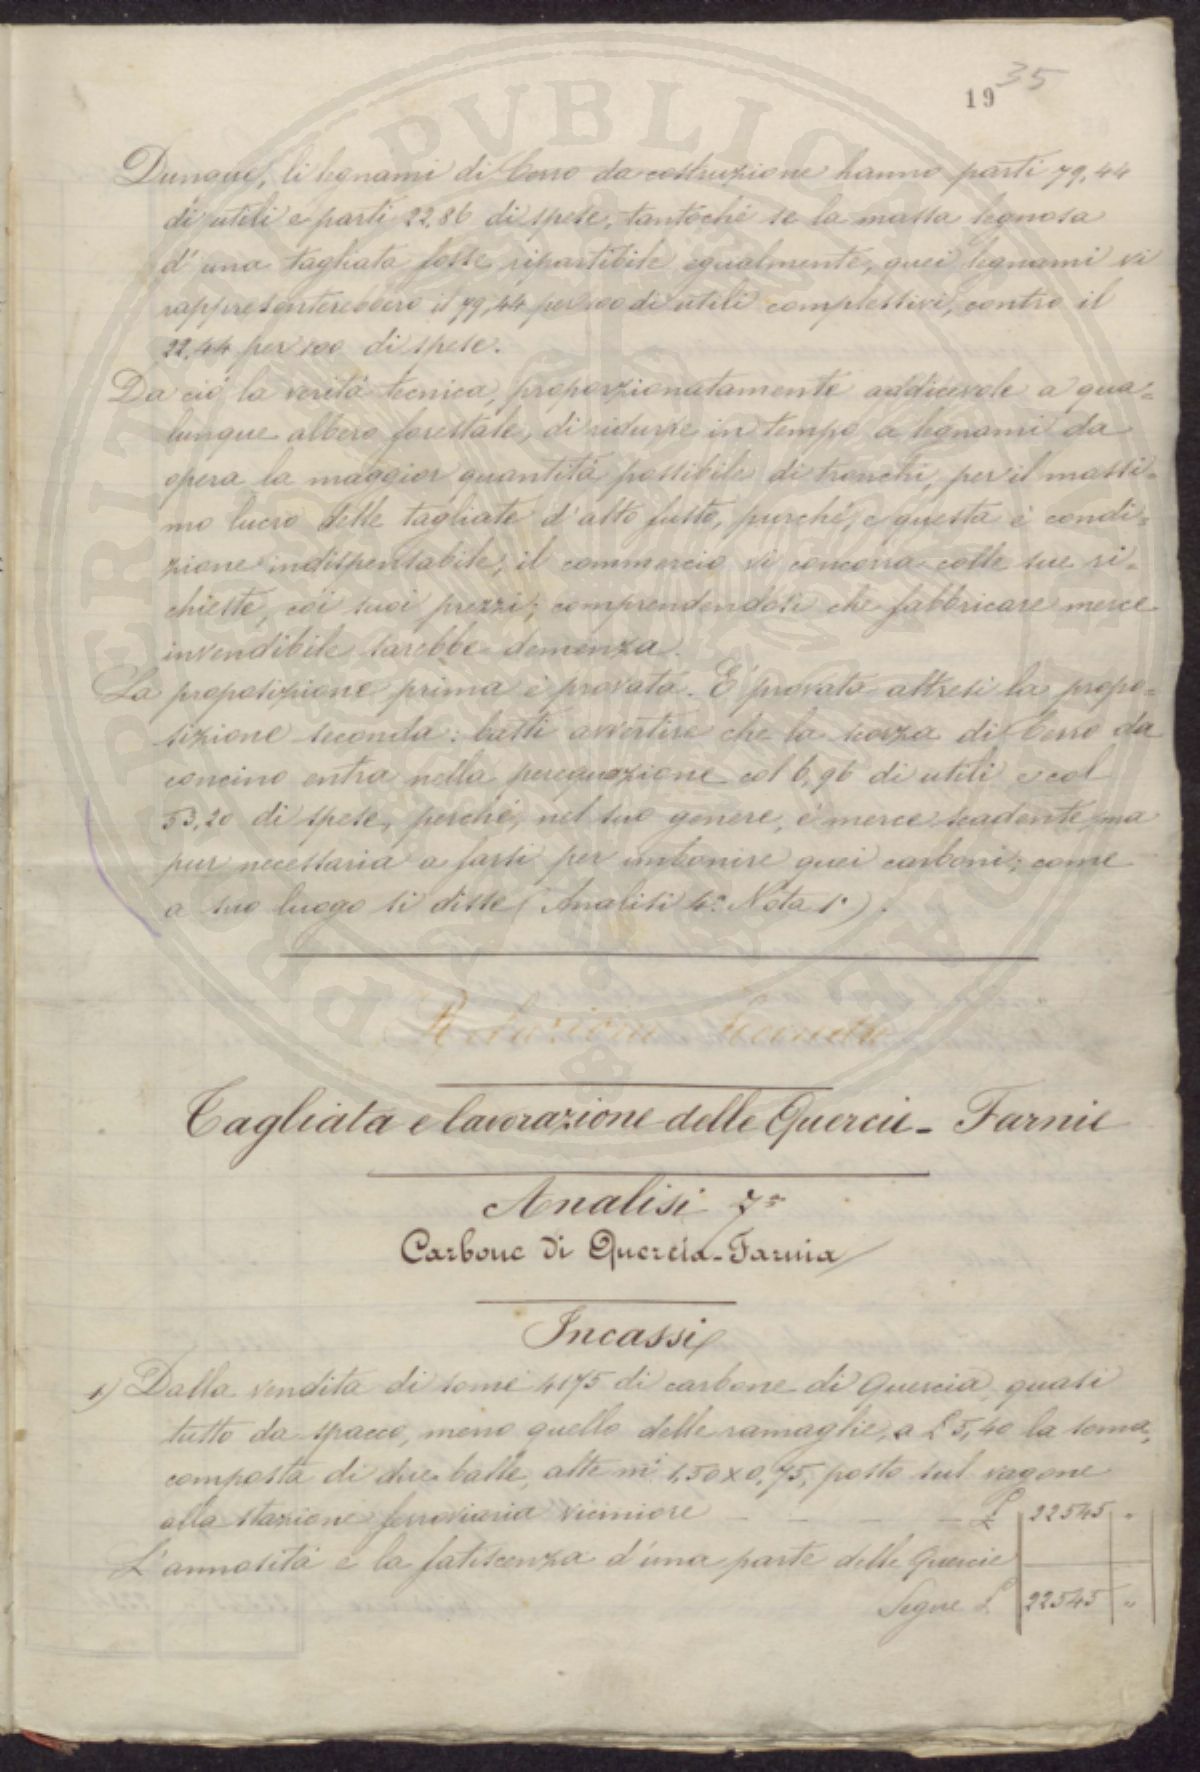 19 35
Dunque, li legnami di Cerro da costruzione hanno parti 79,44
di utili e parti 22,86 di spese, tantoché se la massa legnosa
d'una tagliata fosse ripartibile egualmente, quei legnami vi
rappresenterebbero il 79,44 per 100 di utili complessivi, contro il
22,44 per 100 di spese.
Da ciò la verità tecnica, proporzionatamente addicevole a qua=
lunque albero forestale, di ridurre in tempo a legnami da
opera la maggior quantità possibile di tronchi, per il massi=
mo lucro delle tagliate d'alto fusto, purché, e questa è condi=
zione indispensabile, il commercio vi concorra colle sue ri=
chieste, coi suoi prezzi; comprendendosi che fabbricare merce
invendibile sarebbe demenza.
La proposizione prima è provata. È provata altresì la propo=
sizione seconda: basti avvertire che la scorza di Cerro da
concino entra nella perequazione col 6,96 di utili e col
53,20 di spese, perché, nel suo genere, è merce scadente, ma
pur necessaria a farsi per imbonire quei carboni; come
a suo luogo si disse (Analisi 4a Nota 1a).
Relazione Seconda
Tagliata e lavorazione delle Quercie - Farnie
Analisi 7a
Carbone di Quercia-Farnia
Incassi
1) Dalla vendita di some 4175 di carbone di Quercia, quasi
tutto da spacco, meno quello delle ramaglie, a £ 5,40 la soma,
composta di due balle, alte mi 1,50 x 0,75, posto sul vagone
alla stazione ferroviaria viciniore - - - - £ 22545 "
L'annosità e la fatiscenza d'una parte delle Quercie
Segue £ 22545 "